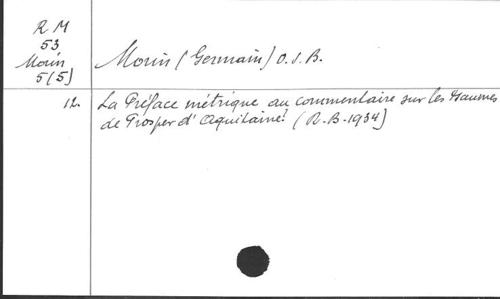 R M
53
Morin
5(5)
Morin (Germain) O.S.B.
12. La Préface métrique au commentaire sur les Psaumes
de Prosper d'Aquitaine! (R.B. 1934)